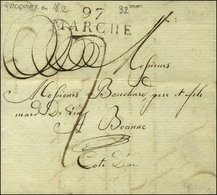 97
MARCHE
32 mm
Messieurs
Messieurs Bouchard pere et fils
mard De Vin
Beaune
Cote D'or